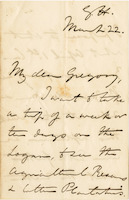 March 22.
My dear Gregory,
I want to take
a trip of a week or
ten days on the
to see the
Agricultural
& Cotton Plantations